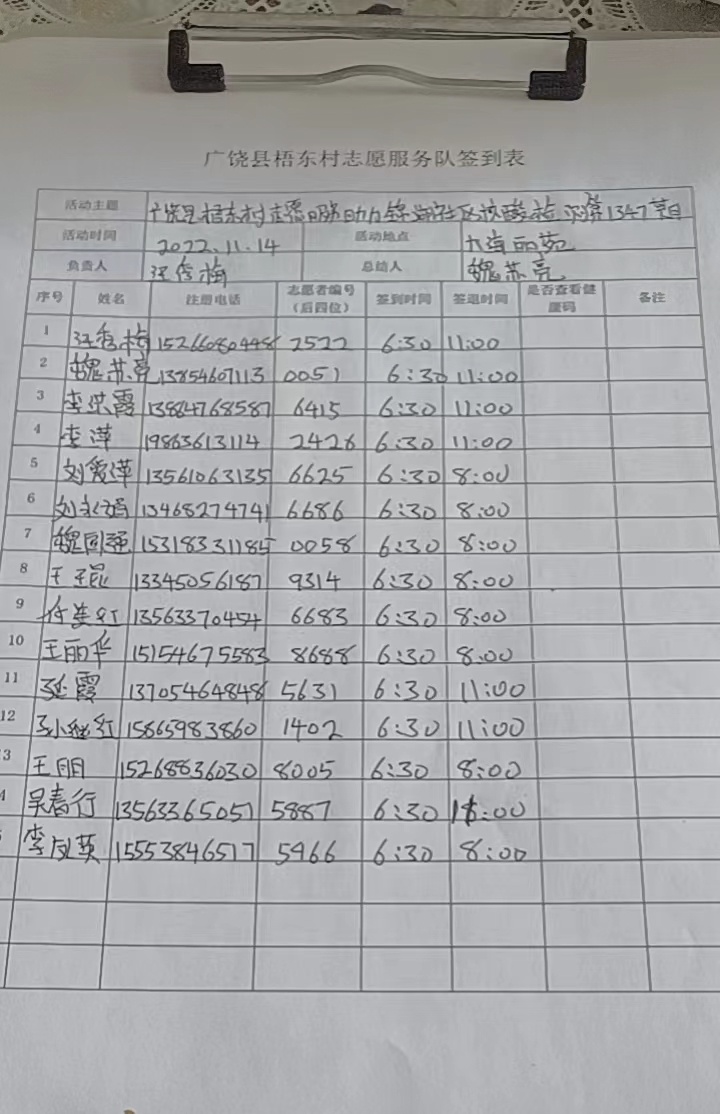 广饶县梧东村志愿服务队签到表
活动主题 广饶县梧东村志愿服务助力 社区核酸检 第1347节目
活动时间 2022.11.14 活动地点 大海丽苑
负责人 汪秀梅 总结人 魏苏亮
序号 姓名 注册电话 志愿者编号（后四位） 签到时间 签退时间 是否查看健康码 备注
1 汪秀梅 15266080448 2522 6:30 11:00
2 魏苏亮 13854607113 0051 6:30 11:00
3 李洪霞 13884768587 6415 6:30 11:00
4 李萍 19863613114 2426 6:30 11:00
5 刘爱萍 13561063135 6625 6:30 8:00
6 刘永娟 13468274741 6686 6:30 8:00
7 魏国强 15318331185 0058 6:30 8:00
8 王 13345056187 9314 6:30 8:00
9 红 13563370454 6683 6:30 8:00
10 王丽华 15154675583 8688 6:30 8:00
11 延霞 13705464848 5631 6:30 11:00
12 孙继红 15865983860 1402 6:30 11:00
3 王明 15268836030 8005 6:30 8:00
4 吴春行 13563365057 5887 6:30 :00
李凤英 15553846517 5966 6:30 8:00